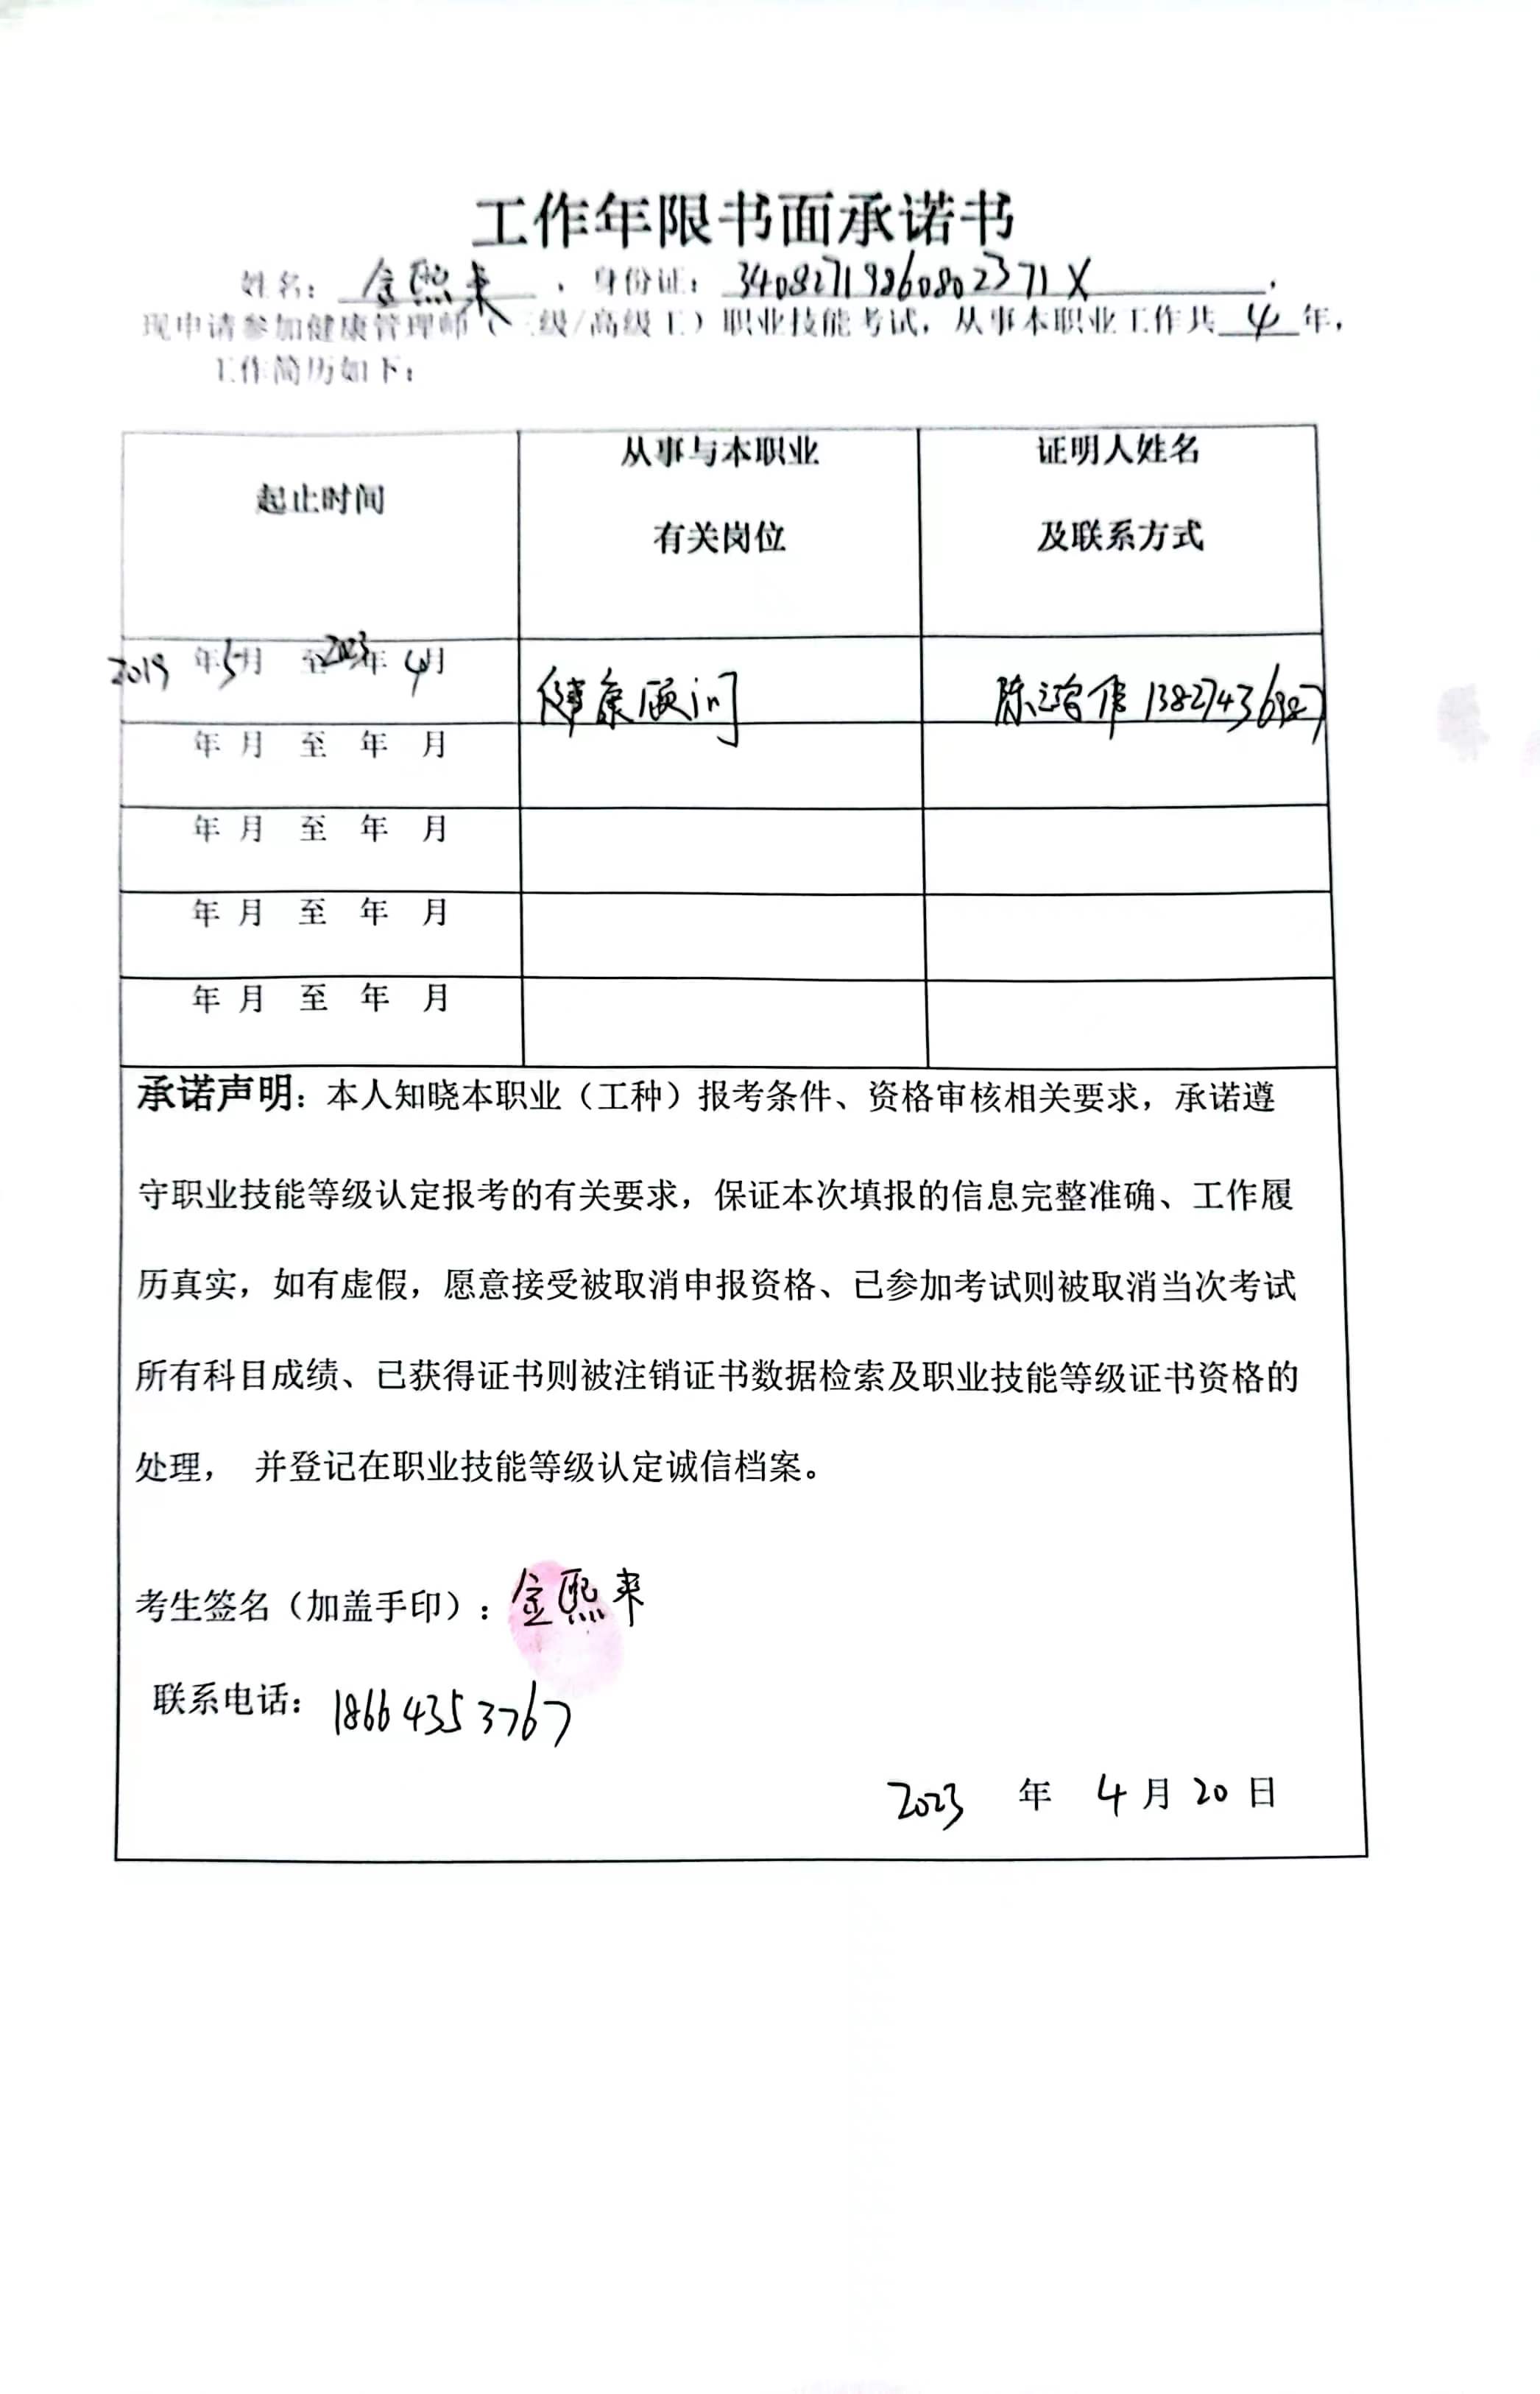 工作年限书面承诺书
姓名：金熙来，身份证：34082719860802371X，
现申请参加健康管理师（三级/高级工）职业技能考试，从事本职业工作共4年，
工作简历如下：
起止时间 从事与本职业有关岗位 证明人姓名及联系方式
2019年5月 至2023年4月 健康顾问 陈鸿伟
年 月 至 年 月
年 月 至 年 月
年 月 至 年 月
年 月 至 年 月
承诺声明：本人知晓本职业（工种）报考条件、资格审核相关要求，承诺遵
守职业技能等级认定报考的有关要求，保证本次填报的信息完整准确、工作履
历真实，如有虚假，愿意接受被取消申报资格、已参加考试则被取消当次考试
所有科目成绩、已获得证书则被注销证书数据检索及职业技能等级证书资格的
处理， 并登记在职业技能等级认定诚信档案。
考生签名（加盖手印）：金熙来
联系电话：18664353767
2023 年 4月20日